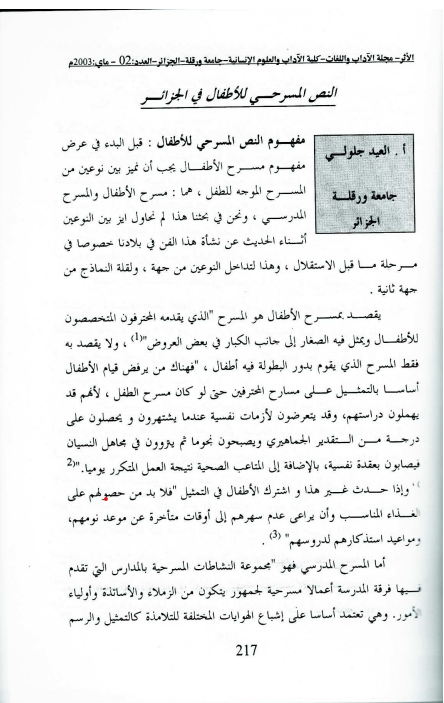 الأثر- مجلة الآداب واللغات- كلية الآداب والعلوم الإنسانية- جامعة ورقلة- الجزائر- العدد: 02 - ماي: 2003م
النص المسرحي للأطفال في الجزائر
أ . العيد جلولي
جامعة ورقلة
الجزائر
مفهوم النص المسرحي للأطفال : قبل البدء في عرض
مفهوم مسرح الأطفال يجب أن نميز بين نوعين من
المسرح الموجه للطفل ، هما : مسرح الأطفال والمسرح
المدرسي ، ونحن في بحثنا هذا لم نحاول ايز بين النوعين
أثناء الحديث عن نشأة هذا الفن في بلادنا خصوصا في
مرحلة ما قبل الاستقلال ، وهذا لتداخل النوعين من جهة ، ولقلة النماذج من
جهة ثانية .
يقصد بمسرح الأطفال هو المسرح "الذي يقدمه المحترفون المتخصصون
للأطفال ويمثل فيه الصغار إلى جانب الكبار في بعض العروض"(1) ، ولا يقصد به
فقط المسرح الذي يقوم بدور البطولة فيه أطفال ، "فهناك من يرفض قيام الأطفال
أساسا بالتمثيل على مسارح المحترفين حتى لو كان مسرح الطفل ، لأنهم قد
يهملون دراستهم، وقد يتعرضون لأزمات نفسية عندما يشتهرون و يحصلون على
درجة من التقدير الجماهيري ويصبحون نجوما ثم ينزوون في مجاهل النسيان
فيصابون بعقدة نفسية، بالإضافة إلى المتاعب الصحية نتيجة العمل المتكرر يوميا."(2
)، وإذا حدث غير هذا و اشترك الأطفال في التمثيل "فلا بد من حصولهم على
الغذاء المناسب وأن يراعى عدم سهرهم إلى أوقات متأخرة عن موعد نومهم،
ومواعيد استذكارهم لدروسهم" (3) .
أما المسرح المدرسي فهو "مجموعة النشاطات المسرحية بالمدارس التي تقدم
فيها فرقة المدرسة أعمالا مسرحية لجمهور يتكون من الزملاء والأساتذة وأولياء
الأمور. وهي تعتمد أساسا على إشباع الهوايات المختلفة للتلامذة كالتمثيل والرسم
217